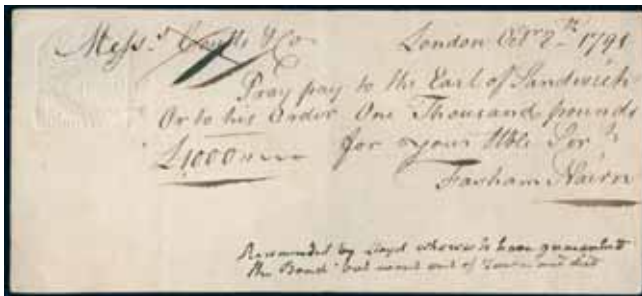 Mess.rs Coutts & Co London Oct.r 2.th 1791
Pray pay to the Earl of Sandwich
Or to his Order One Thousand pounds
£1000 for your Hble Ser.t
Fasham Nairn
Recommended by Lloyd who was to have guaranteed
the Bond but went out of Town and did